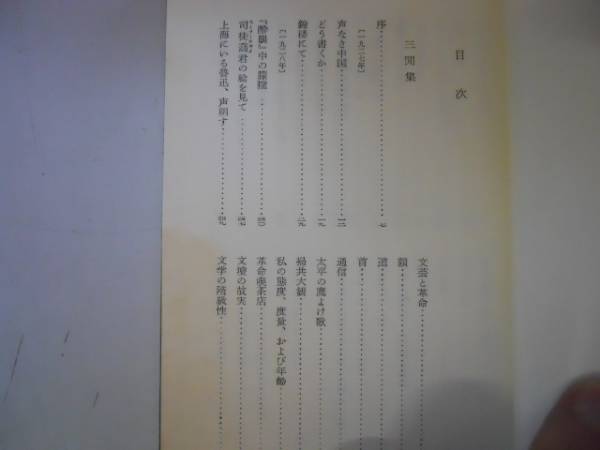 目次
三閒集
序……………………七
［一九二七年］
声なき中国……………………一二
どう書くか……………………一九
鐘楼にて……………………二九
［一九二八年］
『酔眼』中の朦朧……………………四〇
司徒喬君の絵を見て……………………四七
上海にいる魯迅、声明す……………………四九
文芸と革命……………………
頭……………………
通信……………………
太平の魔よけ歌……………………
掃共大観……………………
私の態度、度量、および年齢……………………
革命喫茶店……………………
文壇の故実……………………
文学の階級性……………………